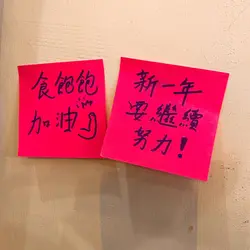 食飽飽
加油
新一年
要繼續
努力！